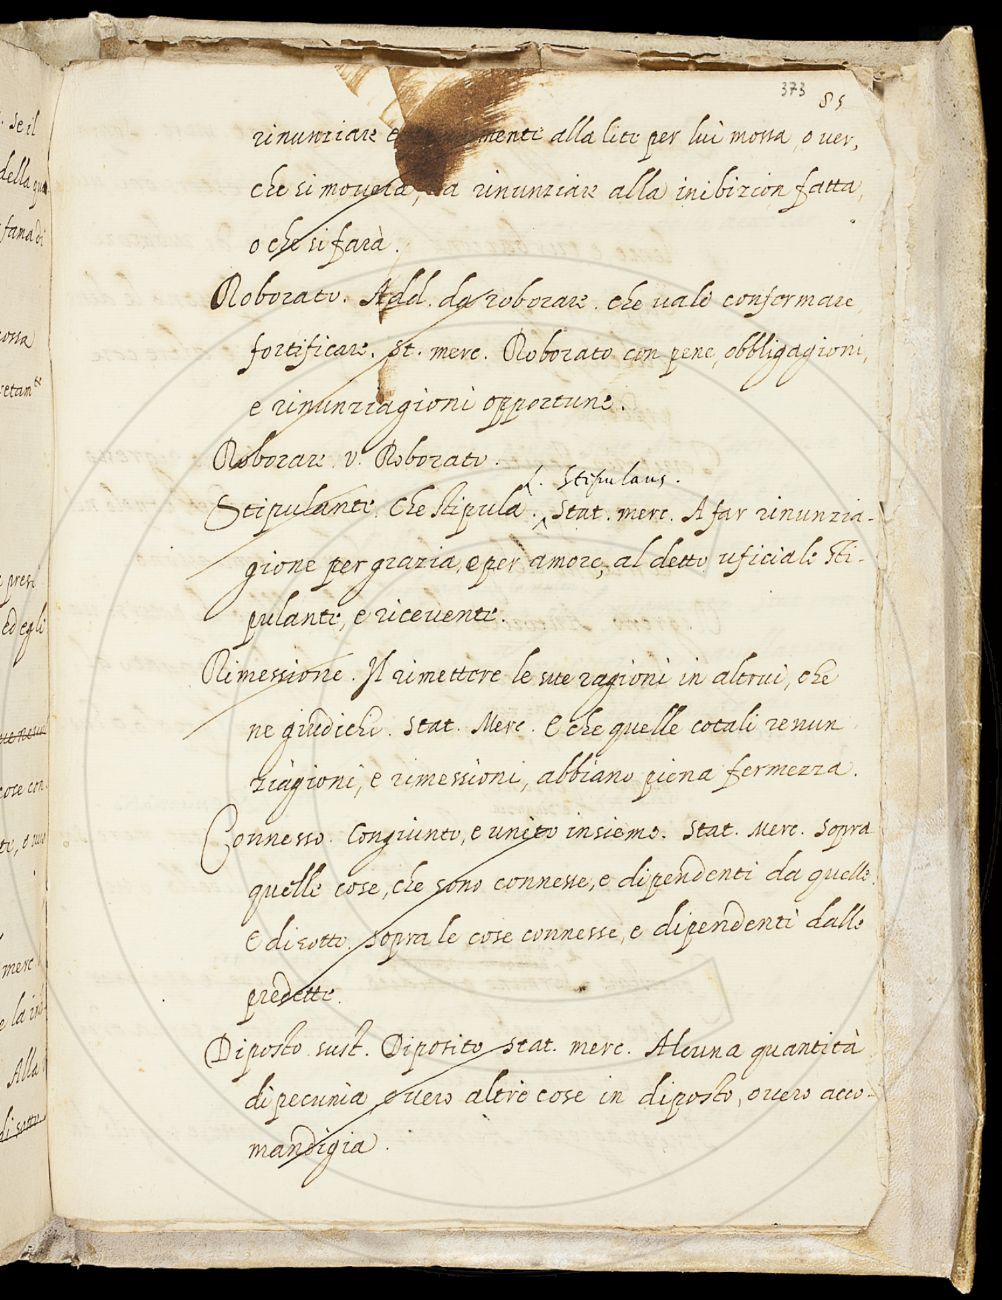 373 85
rinunziare e mente alla lite per lui mossa, o ver,
che si moverà, rinunziare alla inibizion fatta,
o che si farà.
Roborato. Add. da roborare. che vale confermare
fortificare. St. merc. Roborato con pene, obbligagioni,
e rinunziagioni opportune.
Roborare. v. Roborato.
L. Stipulans.
Stipulante. Che stipula. Stat. merc. A far rinunzia-
gione per grazia, e per amore, al detto uficiale sti-
pulante, e ricevente.
Rimessione. Il rimettere le sue ragioni in altrui, che
ne giudichi. Stat. Merc. E che quelle cotali renun
ziagioni, e rimessioni, abbiano piena fermezza.
Connesso. Congiunto, e unito insieme. Stat. Merc. Sopra
quelle cose, che sono connesse, e dipendenti da quelle.
E di sotto. Sopra le cose connesse, e dipendenti dalle
predette.
Diposto. sust. Diposito. Stat. merc. Alcuna quantità
di pecunia ovvero altre cose in diposto, overo acco-
mandigia.